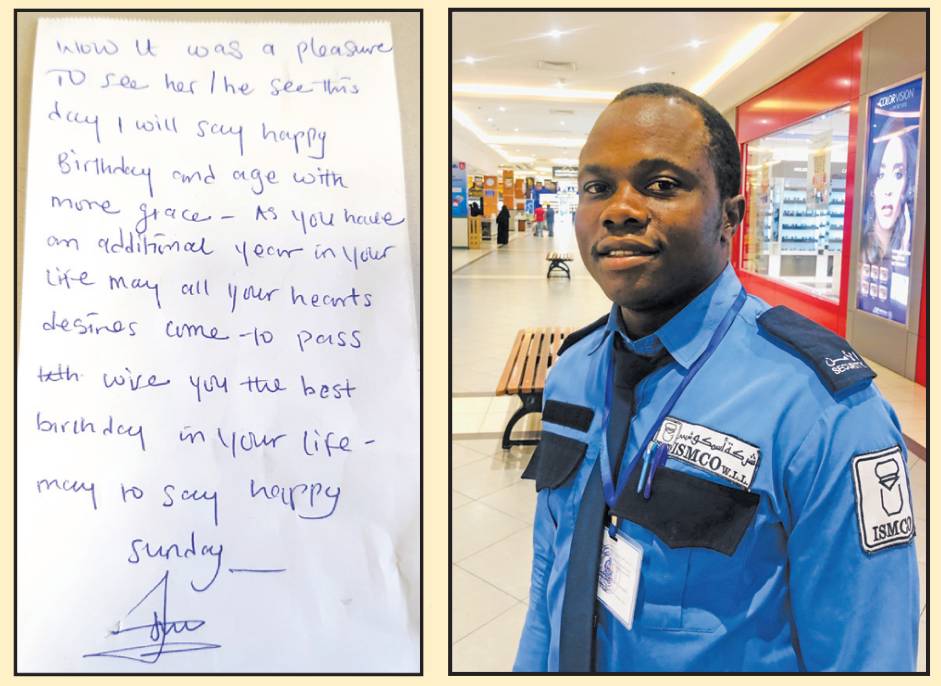 wow it was a pleasure
TO see her/he see this
day I will say happy
Birthday and age with
more grace - As you have
an additional year in your
life may all your hearts
desires come to pass
wise you the best
birthday in your life -
may to say happy
sunday
COLORVISION
الأمن
SECURITY
شركة أسمكو ذ.م.م
ISMCO W.L.L.
ISMCO